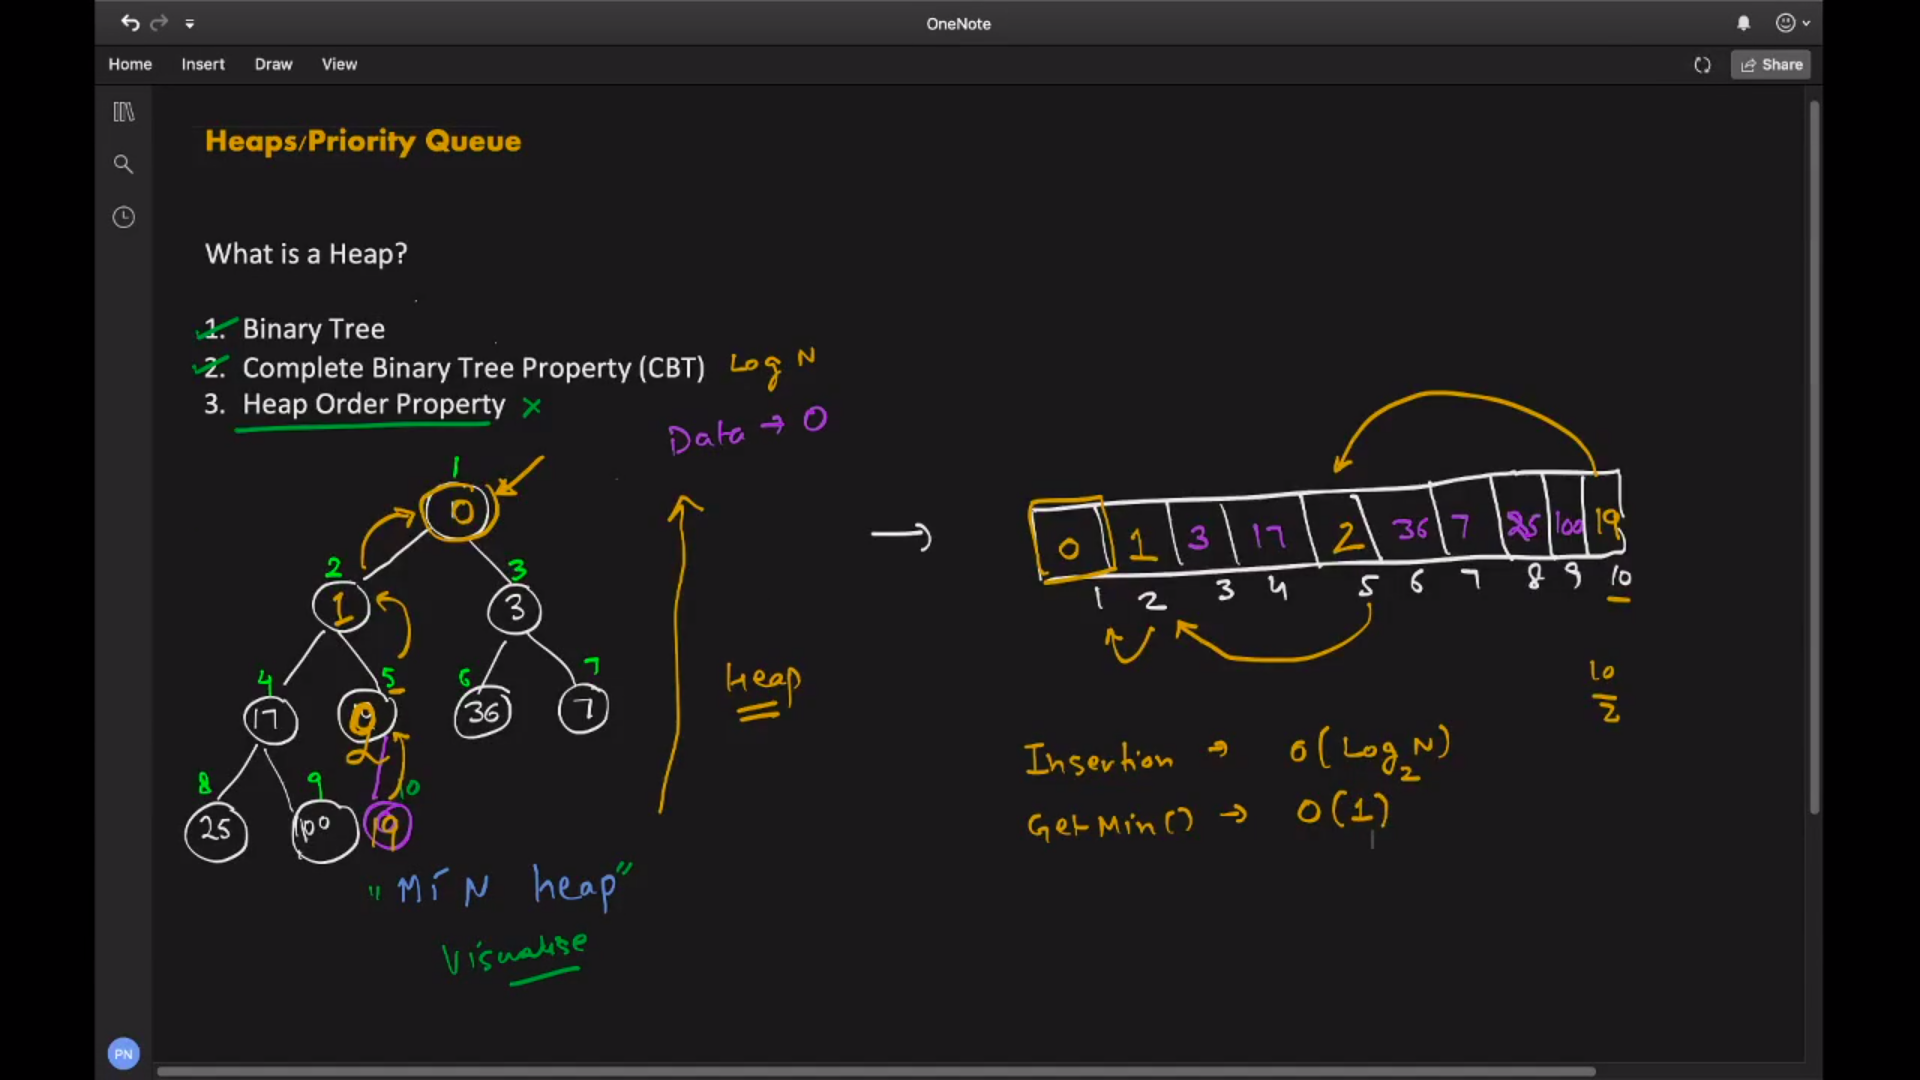 OneNote
Home Insert Draw View Share
Heaps/Priority Queue
What is a Heap?
1. Binary Tree
2. Complete Binary Tree Property (CBT) Log N
3. Heap Order Property ×
Data → 0
1
0
2 3
1 3
4 5 6 7
17 2 36 7
8 9 10
25 100 19
"MIN heap"
Visualise
Heap
→
0 1 3 17 2 36 7 25 100 19
1 2 3 4 5 6 7 8 9 10
10
2
Insertion → O(Log2 N)
GetMin() → O(1)
PN